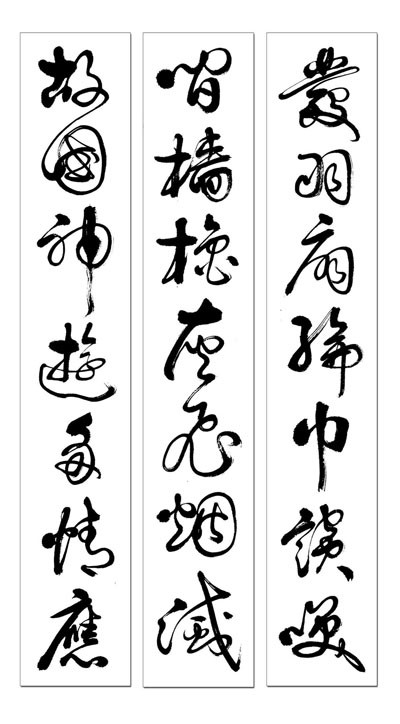 發羽扇綸巾談笑
間檣櫓灰飛烟滅
故國神遊多情應